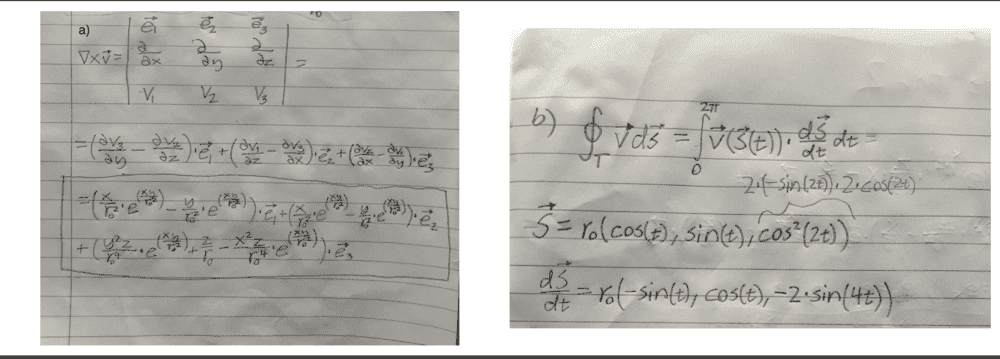 a)
∇×v⃗ = | e⃗₁ e⃗₂ e⃗₃ |
| ∂/∂x ∂/∂y ∂/∂z | =
| V₁ V₂ V₃ |
= (∂V₃/∂y − ∂V₂/∂z)·e⃗₁ + (∂V₁/∂z − ∂V₃/∂x)·e⃗₂ + (∂V₂/∂x − ∂V₁/∂y)·e⃗₃
= (x/r₀²·e^(xy/r₀²) − y/r₀²·e^(xy/r₀²))·e⃗₁ + (x/r₀²·e^(xy/r₀²) − y/r₀²·e^(xy/r₀²))·e⃗₂
+ (y²z/r₀⁴·e^(xy/r₀²) + z/r₀ − x²z/r₀⁴·e^(xy/r₀²))·e⃗₃
b) ∮_T v⃗ ds⃗ = ∫₀^2π v⃗(s⃗(t))·ds⃗/dt dt =
2·(−sin(2t))·2·cos(2t)
s⃗ = r₀(cos(t), sin(t), cos²(2t))
ds⃗/dt = r₀(−sin(t), cos(t), −2·sin(4t))